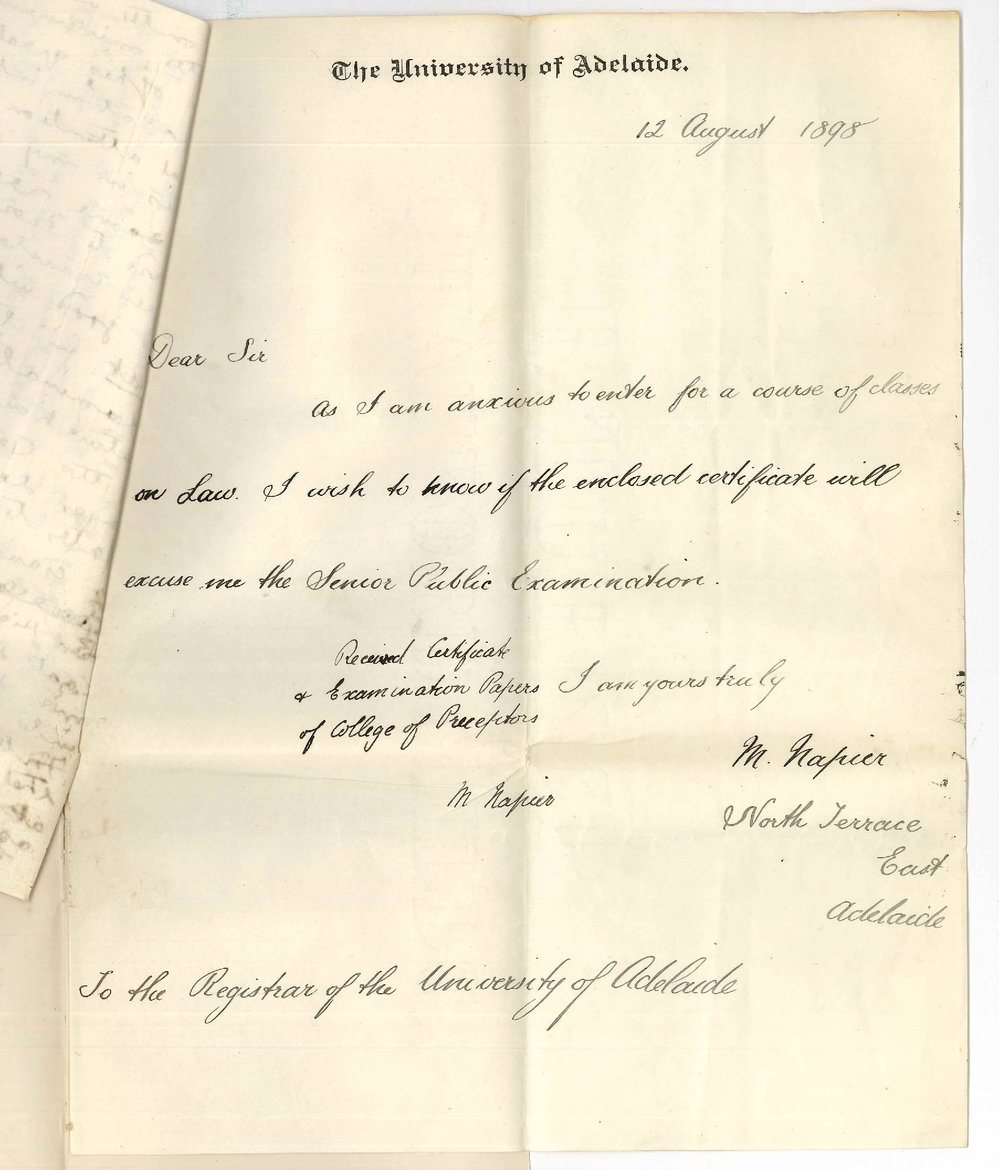 The University of Adelaide.
12 August 1898
Dear Sir
As I am anxious to enter for a course of classes
on Law. I wish to know if the enclosed certificate will
excuse me the Senior Public Examination.
I am yours truly
M. Napier
North Terrace
East
Adelaide
Received Certificate
& Examination Papers
of College of Preceptors
M Napier
To the Registrar of the University of Adelaide